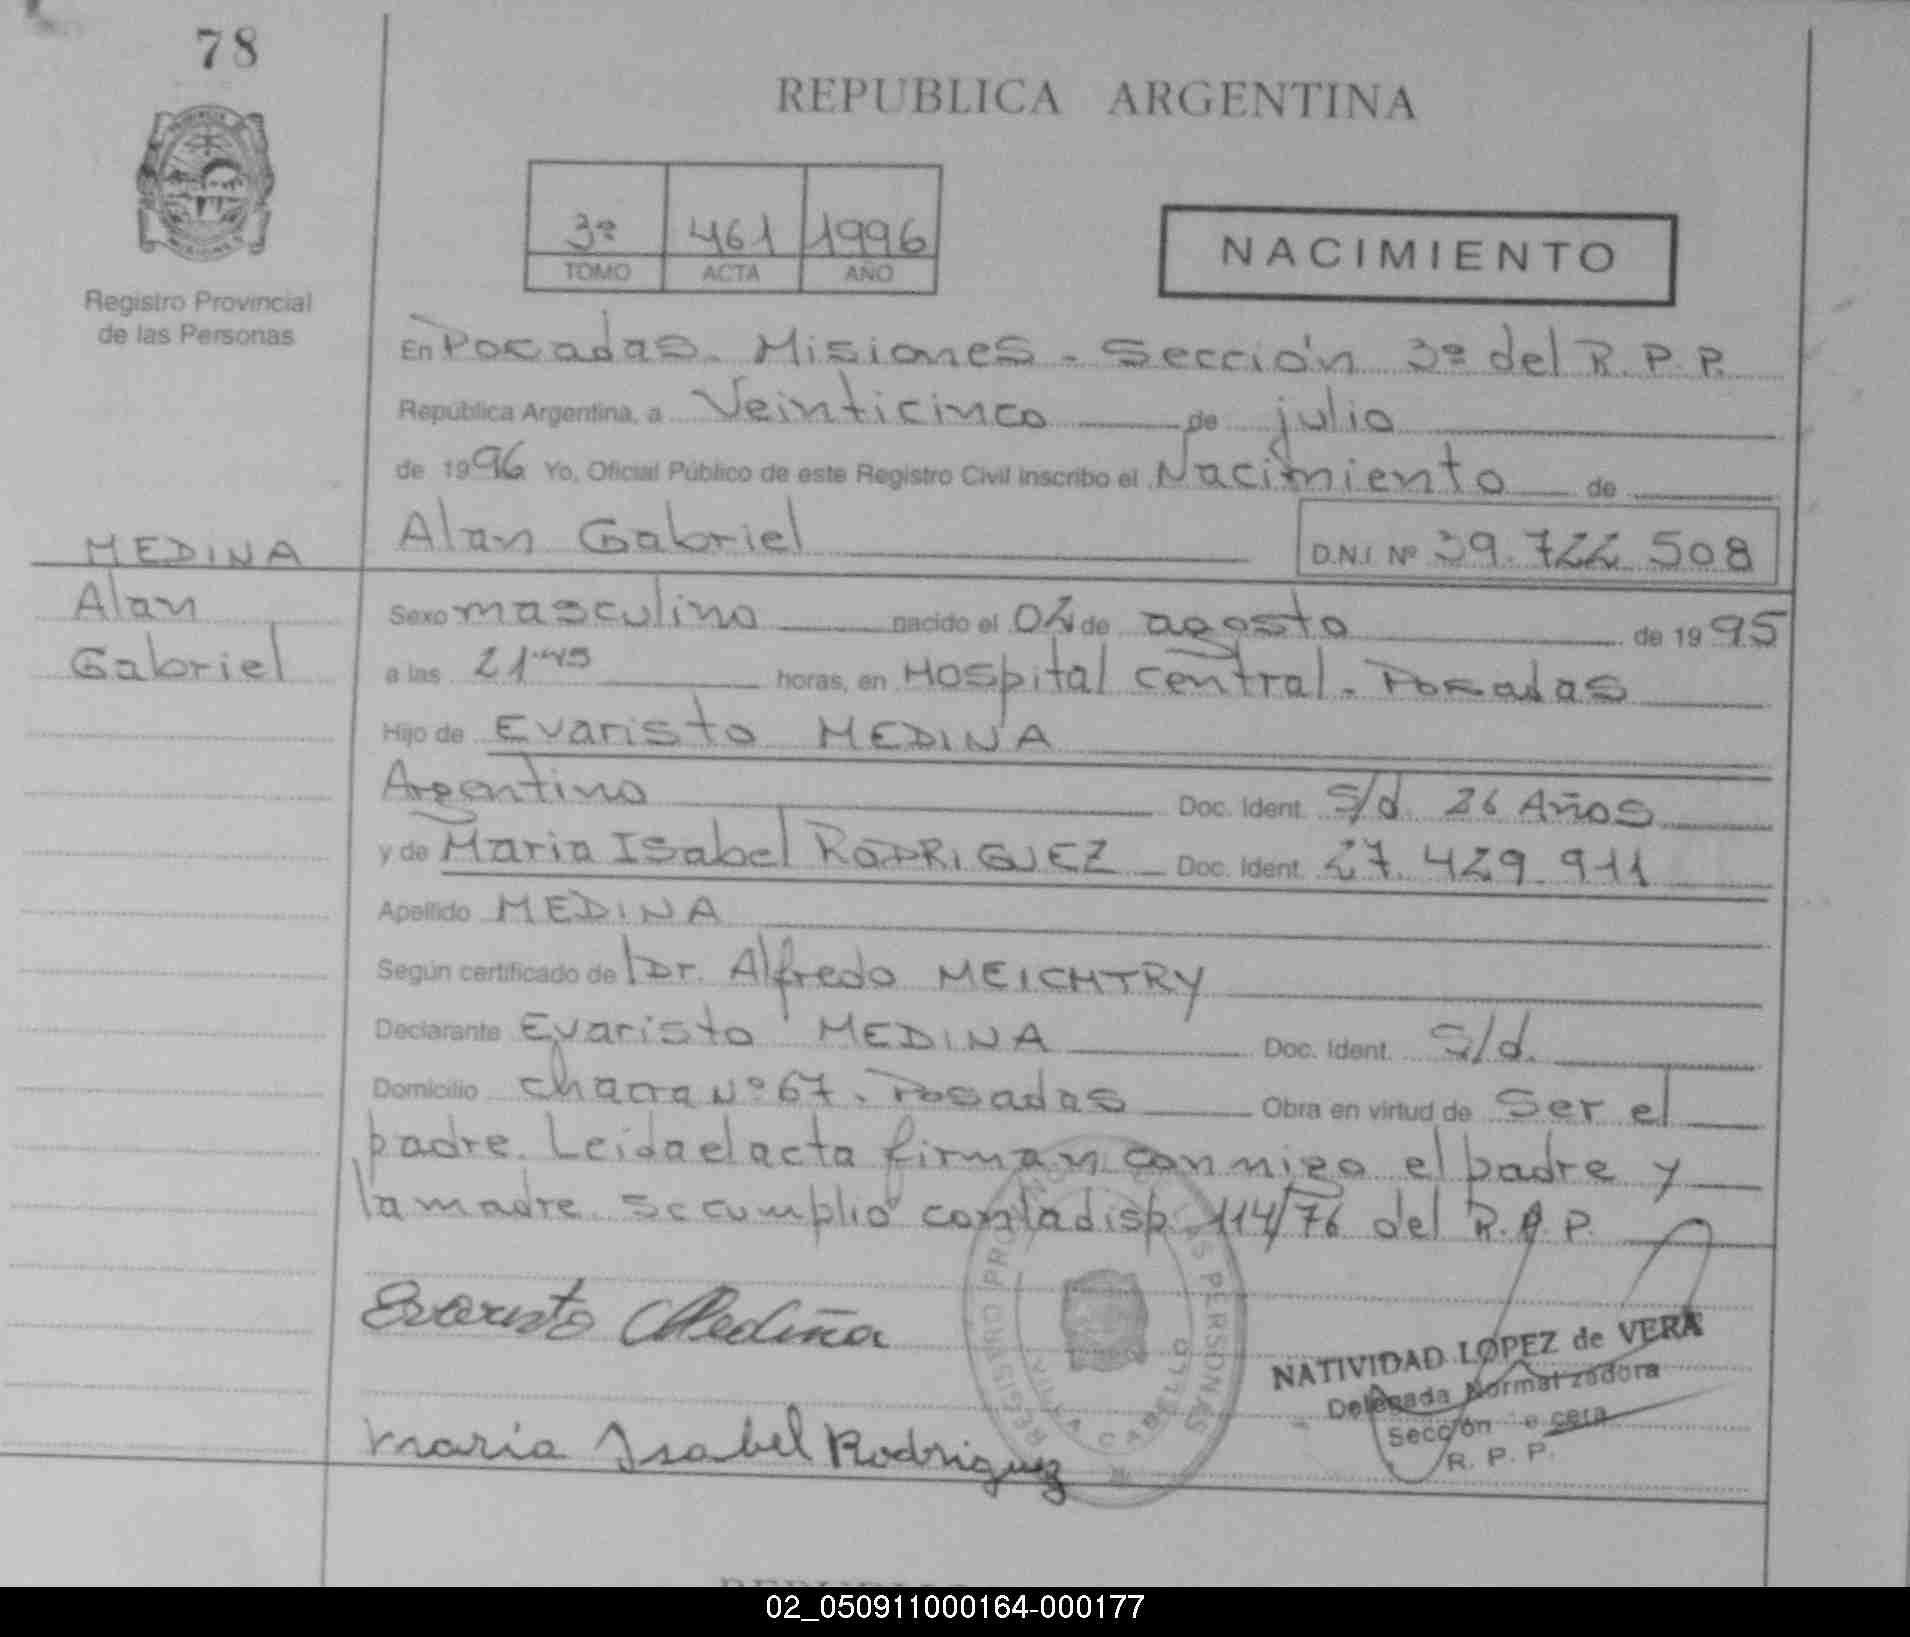 78
REPUBLICA ARGENTINA
3º 461 1996
TOMO ACTA AÑO
NACIMIENTO
Registro Provincial
de las Personas
En Posadas. Misiones - Sección 3º del R.P.P.
República Argentina, a Veinticinco de julio
de 1996 Yo, Oficial Público de este Registro Civil inscribo el Nacimiento de
Alan Gabriel D.N.I. Nº 39.722.508
MEDINA
Alan
Gabriel
Sexo masculino nacido el 02 de agosto de 1995
a las 21:45 horas, en Hospital central. Posadas
Hijo de Evaristo MEDINA
Argentino Doc. Ident. S/d. 26 Años
y de Maria Isabel RODRIGUEZ Doc. Ident. 27.429.911
Apellido MEDINA
Según certificado de Dr. Alfredo MEICHTRY
Declarante Evaristo MEDINA Doc. Ident. S/d.
Domicilio chacra Nº 67. Posadas Obra en virtud de Ser el
padre. Leida el acta firman conmigo el padre y
la madre. Se cumplió con la disp. 114/76 del R.P.P.
Evaristo Mediña
Maria Isabel Rodriguez
REGISTRO PROVINCIAL DE LAS PERSONAS
VILLA CABELLO
NATIVIDAD LOPEZ de VERA
Delegada Normalizadora
Sección Tercera
R. P. P.
02_050911000164-000177